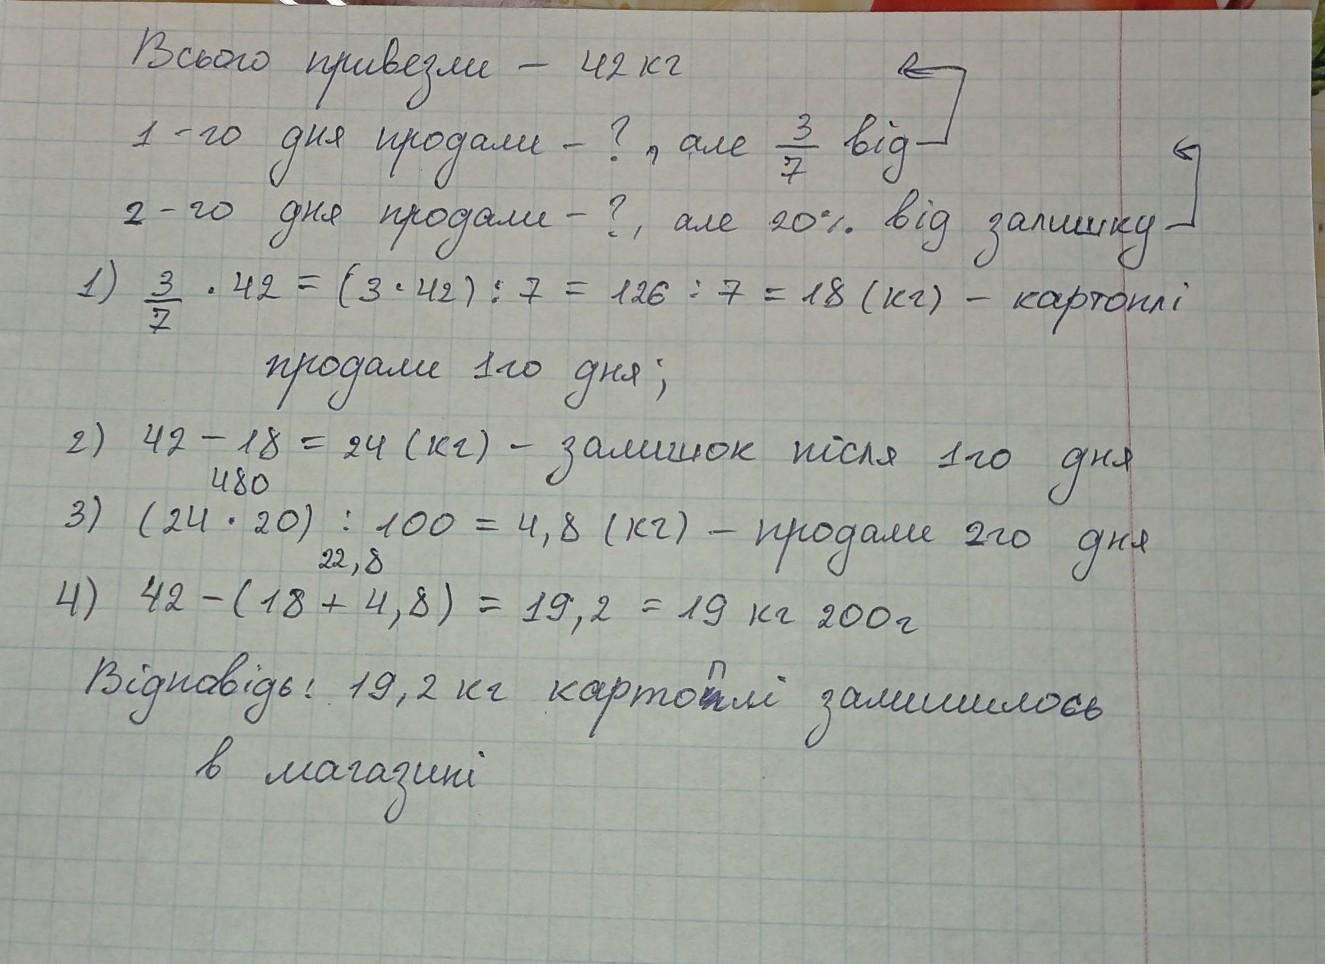 Всього привезли - 42 кг
1-го дня продали - ?, але 3/7 від
2-го дня продали - ?, але 20% від залишку
1) 3/7 · 42 = (3·42) : 7 = 126 : 7 = 18 (кг) - картоплі
продали 1го дня;
2) 42 - 18 = 24 (кг) - залишок після 1го дня
480
3) (24 · 20) : 100 = 4,8 (кг) - продали 2го дня
22,8
4) 42 - (18 + 4,8) = 19,2 = 19 кг 200г
Відповідь: 19,2 кг картоплі залишилось
в магазині